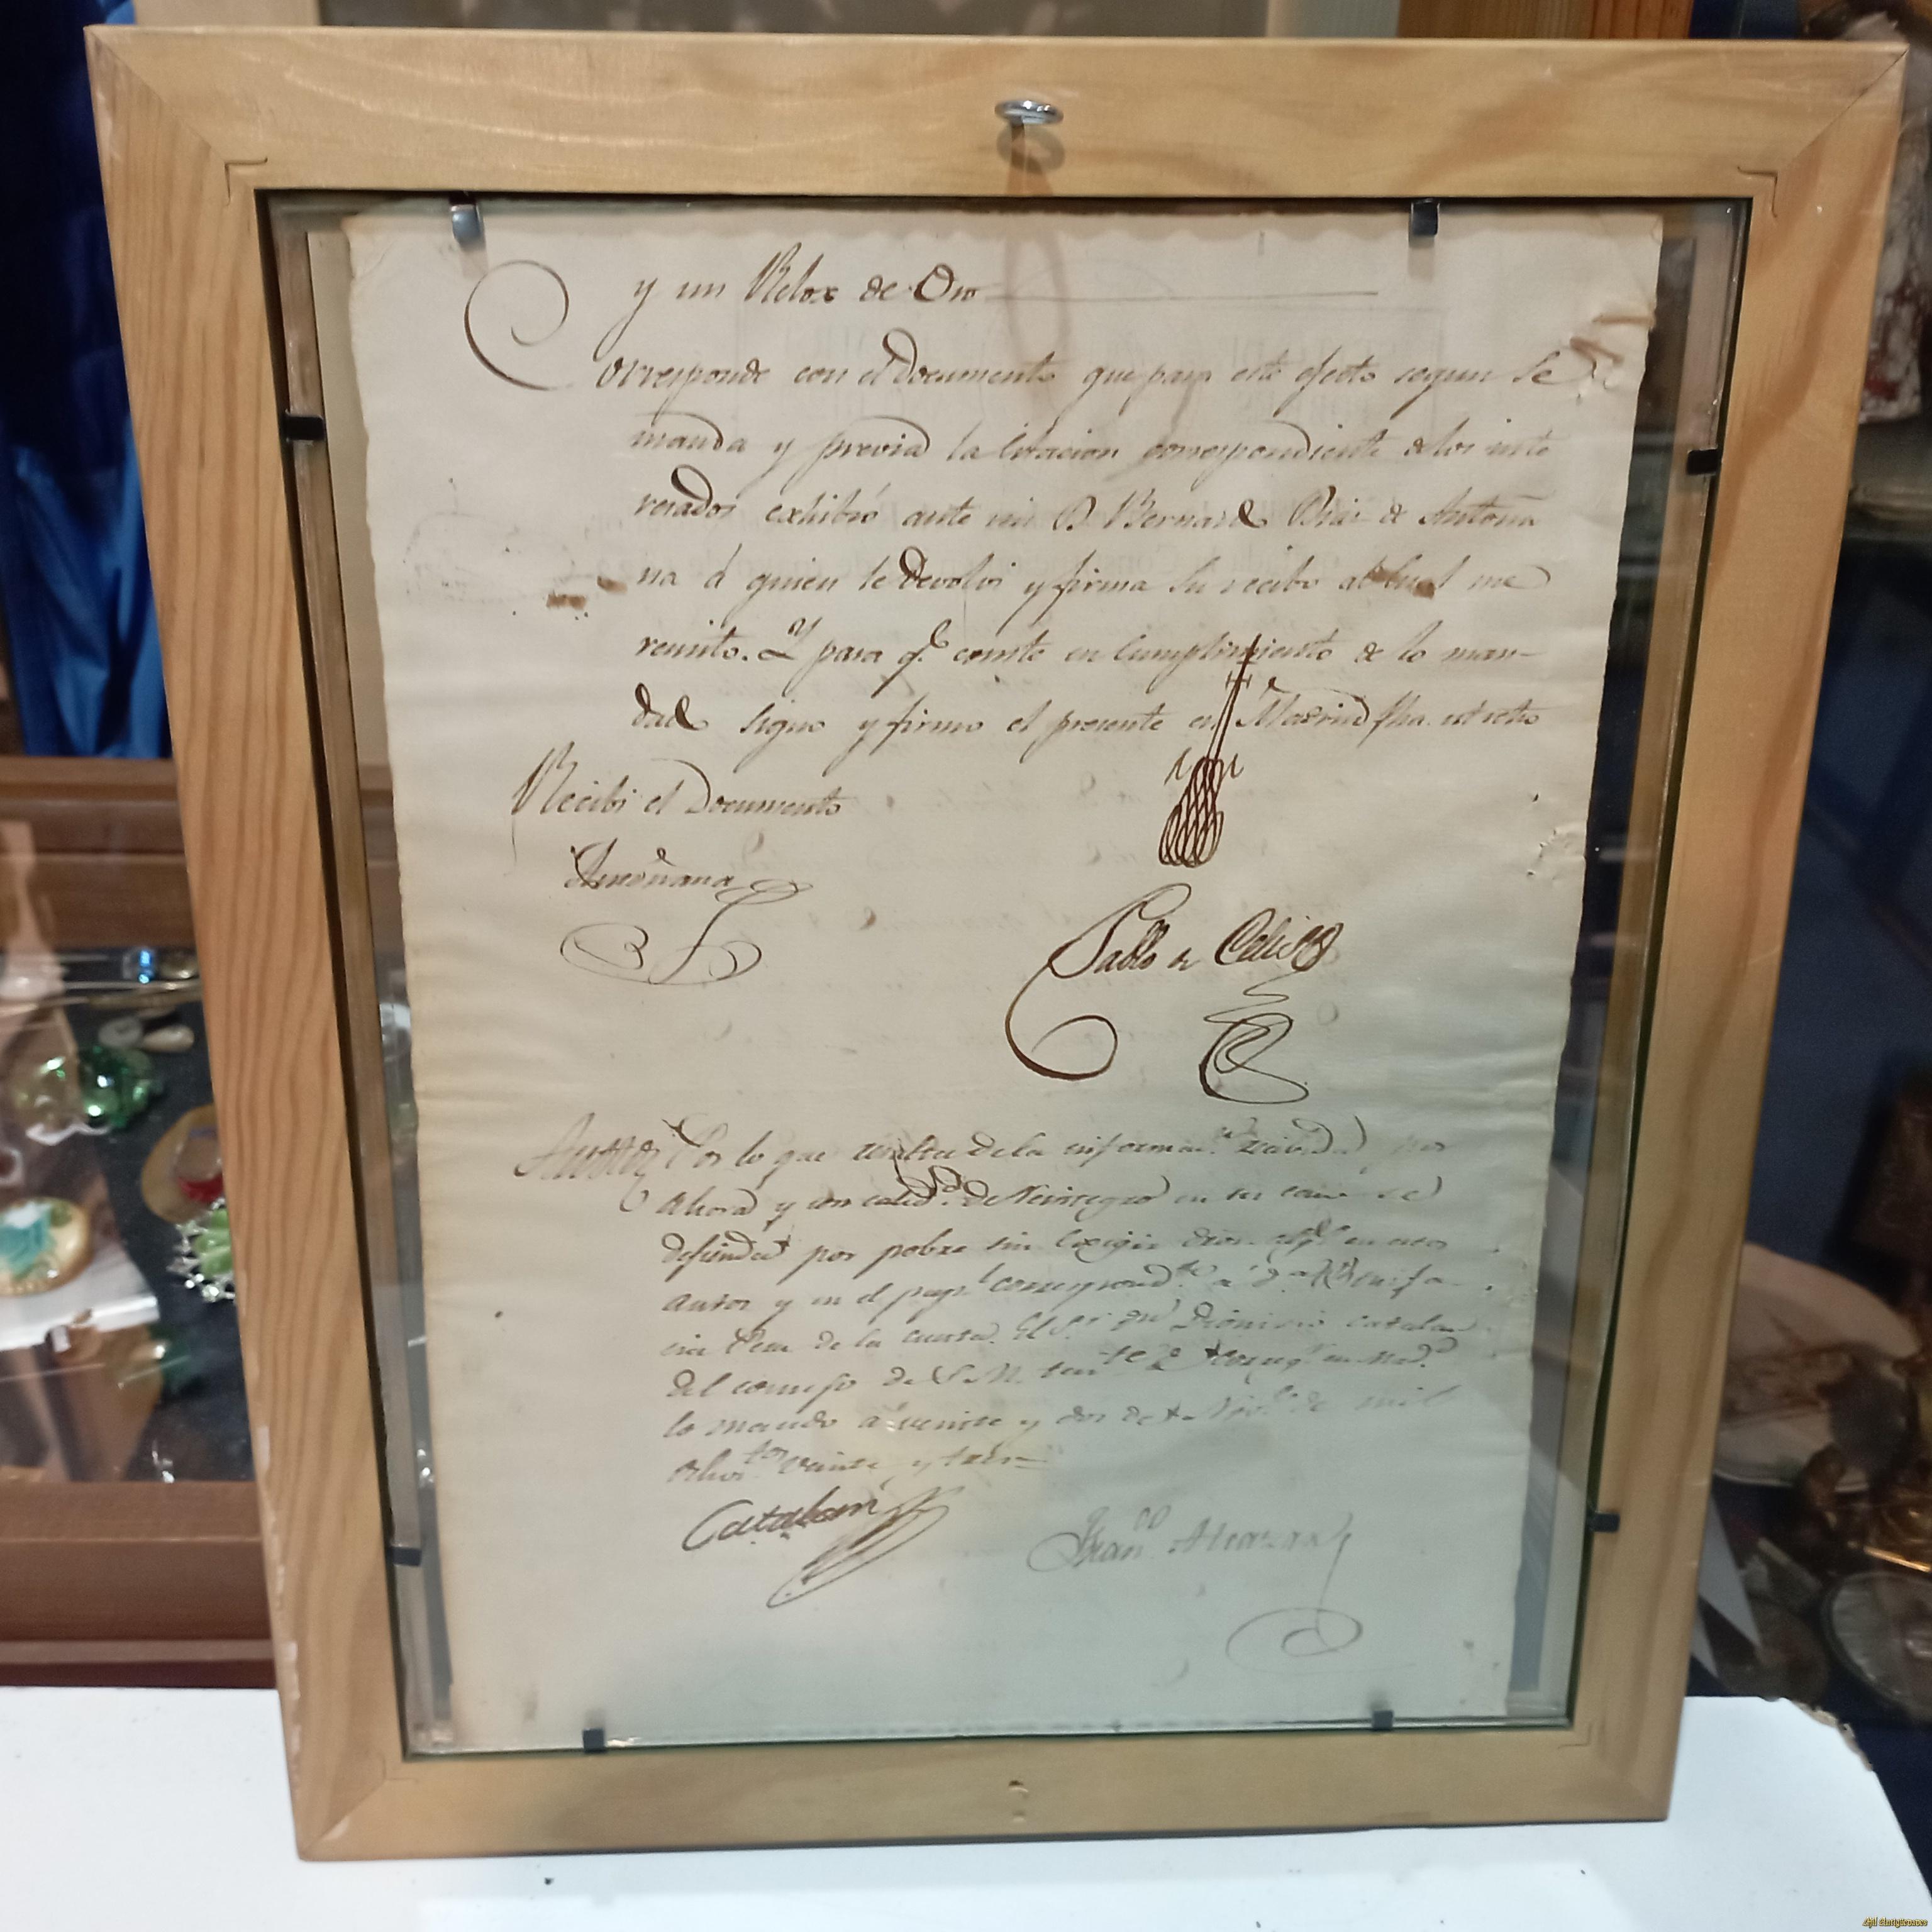 y un Relox de Oro
Corresponde con el Documento que para este efecto segun se
manda y previa la Citacion correspondiente delos inte
resados exhibió ante mi D. Bernardo Diaz de Antoña
na á quien le devolvi y firma su recibo al cual me
remito. Y para q.e conste en Cumplimiento de lo man-
dado signo y firmo el presente en Madrid fha. ut retro
Recibi el Documento
Antoñana
Pablo de Celis
Auto Por lo que resulta de la informa.on recivida por
ahora y con calid.d de Reintegro en su caso se
defienda por pobre sin Exigir dros. en estos
autos y en el pap.l correspond.te a D.a Bonifa
cia de la Cuesta. El S.r Dn Dionisio Catalan
del consejo de S.M. ten.te de Correg.r en Mad.d
lo mando á veinte y dos de de mil
ochos.tos veinte y tres=
Catalan
Fran.co Alcazar